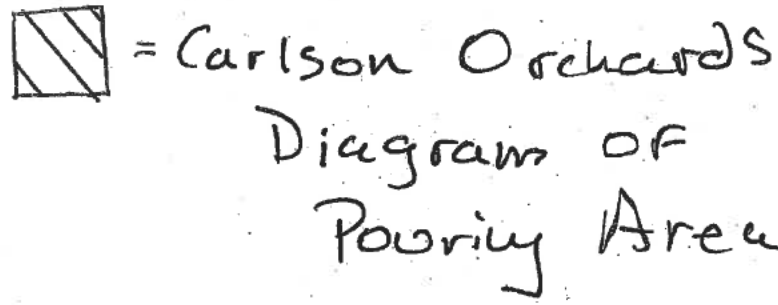 = Carlson Orchards
Diagram of
Pouring Area